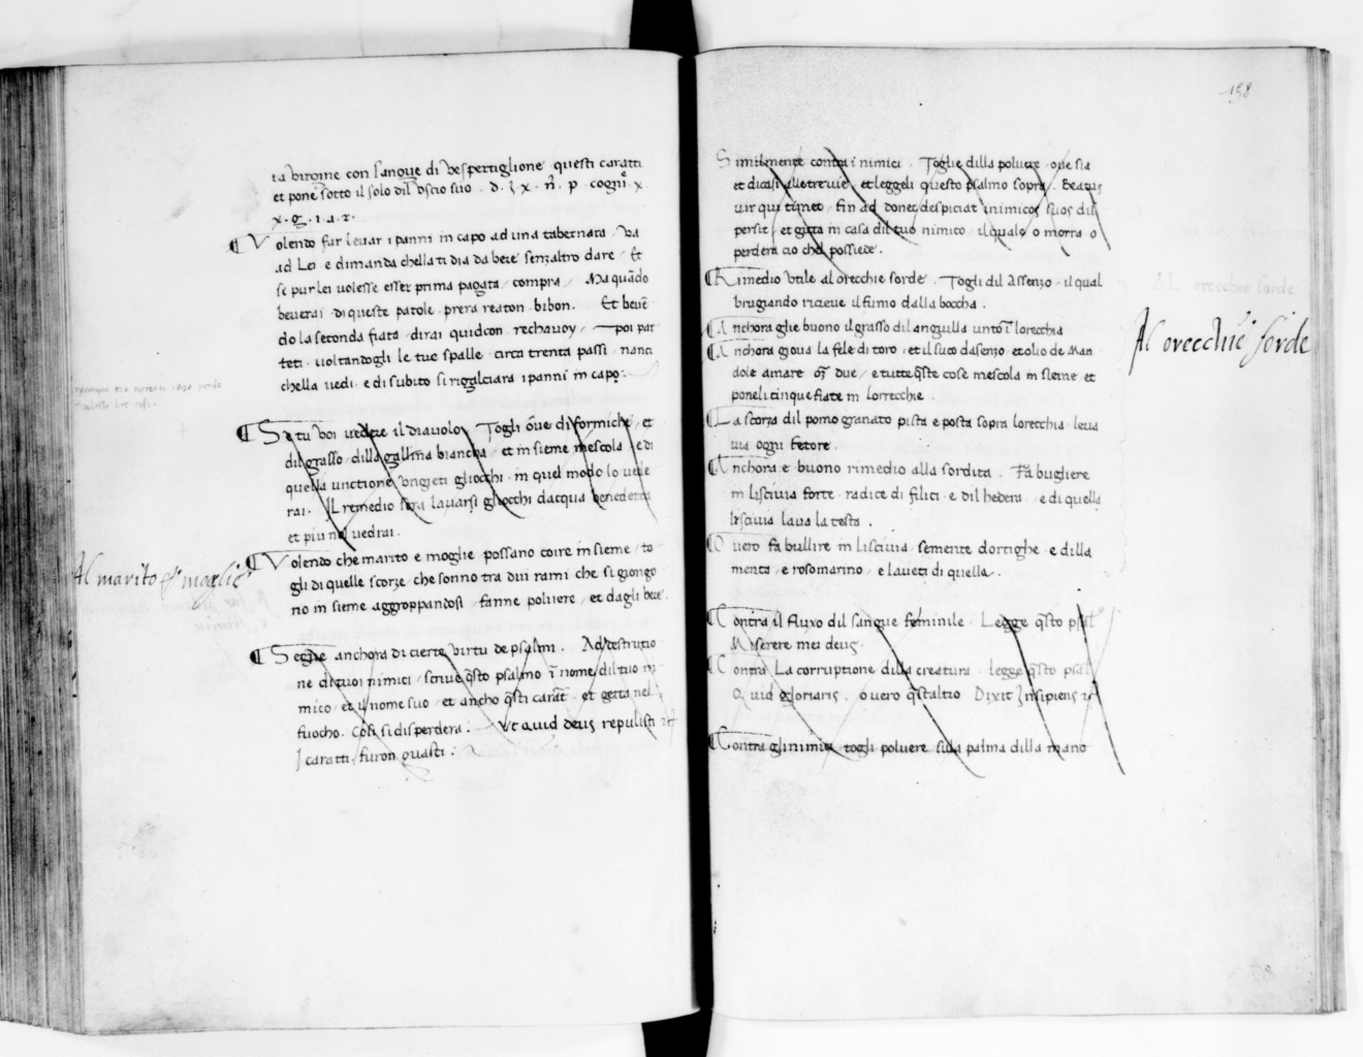 ta virgine con sangue di vespertiglione questi caratti
et pone sotto il solo dil uscio suo . d. ʒ. x . n̄. p . cogni . x
x . g . i . a . r .
¶ Volendo far levar i panni in capo ad una tabernara . Va
ad Lei e dimanda chella ti dia da bere senzaltro dare . Et
se pur lei volesse esser prima pagata / compra / Ma quādo
beverai di queste parole . prera reaton . bibon . Et bevē
do la seconda fiata . dirai quidcon rechavoy / poi par
teti . voltandogli le tue spalle . circa trenta passi . nanci
chella vedi . e di subito si rigalciara i panni in capo :
¶ Se tu voi vedere il diavolo Togli ove di formiche . et
dil grasso dilla gallina biancha . et in sieme mescola e di
quella unctione ungieti gliocchi . in quel modo lo vede
rai . Il remedio sera lavarsi gliocchi dacqua benedetta
et piu nol vedrai .
Al marito & moglie
¶ Volendo che marito e moglie possano coire in sieme / to
gli di quelle scorze / che sonno tra dui rami che si giongo
no in sieme aggroppandosi / fanne polvere / et dagli bere .
¶ Segue anchora di cierte virtu de psalmi . Ad destrutio
ne di tuoi nimici . scrive q̄sto psalmo ī nome dil tuo ni
mico / et il nome suo / et ancho q̄sti carat̄ . et getta nel
fuocho . Cosi si disperdera : Ut quid deus repulisti
I caratti furon guasti :
198
Similmente contra i nimici . Toglie dilla polvere . ove sia
et dicasi alle tre vie / et leggeli questo psalmo sopra . Beatus
vir qui timet / fin ad donec despiciat inimicos suos dis
persit / et gitta in casa dil tuo nimico . il quale o morra o
perdera cio chel possiede .
¶ Rimedio utile al orecchie sorde . Togli dil Assenzo . il qual
brugiando riceve il fumo dalla boccha .
AL orecchie sorde .
Al orecchie sorde
¶ Anchora glie buono il grasso dil anguilla unto ī lorecchia
¶ Anchora giova la fele di toro . et il suco dasenzo . et olio de Man
dole amare . oʒ due / e tutte q̄ste cose mescola in sieme . et
poneli cinque fiate in lorrecchie .
¶ La scorza dil pomo granato pista e posta sopra lorecchia . leva
via ogni fetore .
¶ Anchora e buono rimedio alla sordita . Fa bugliere
in liscivia forte . radice di filici . e dil hedera . e di quella
liscivia lava la testa .
¶ Overo fa bullire in liscivia . semente dortighe . e dilla
menta . e rosomarino . e laveti di quella .
¶ Contra il fluxo dil sangue feminile . Legge q̄sto psal
Miserere mei deus .
¶ Contra La corruptione dilla creatura . legge q̄sto psal
Quid gloriaris . overo q̄staltio Dixit Insipiens
¶ Contra gli nimici togli polvere sula palma dilla mano